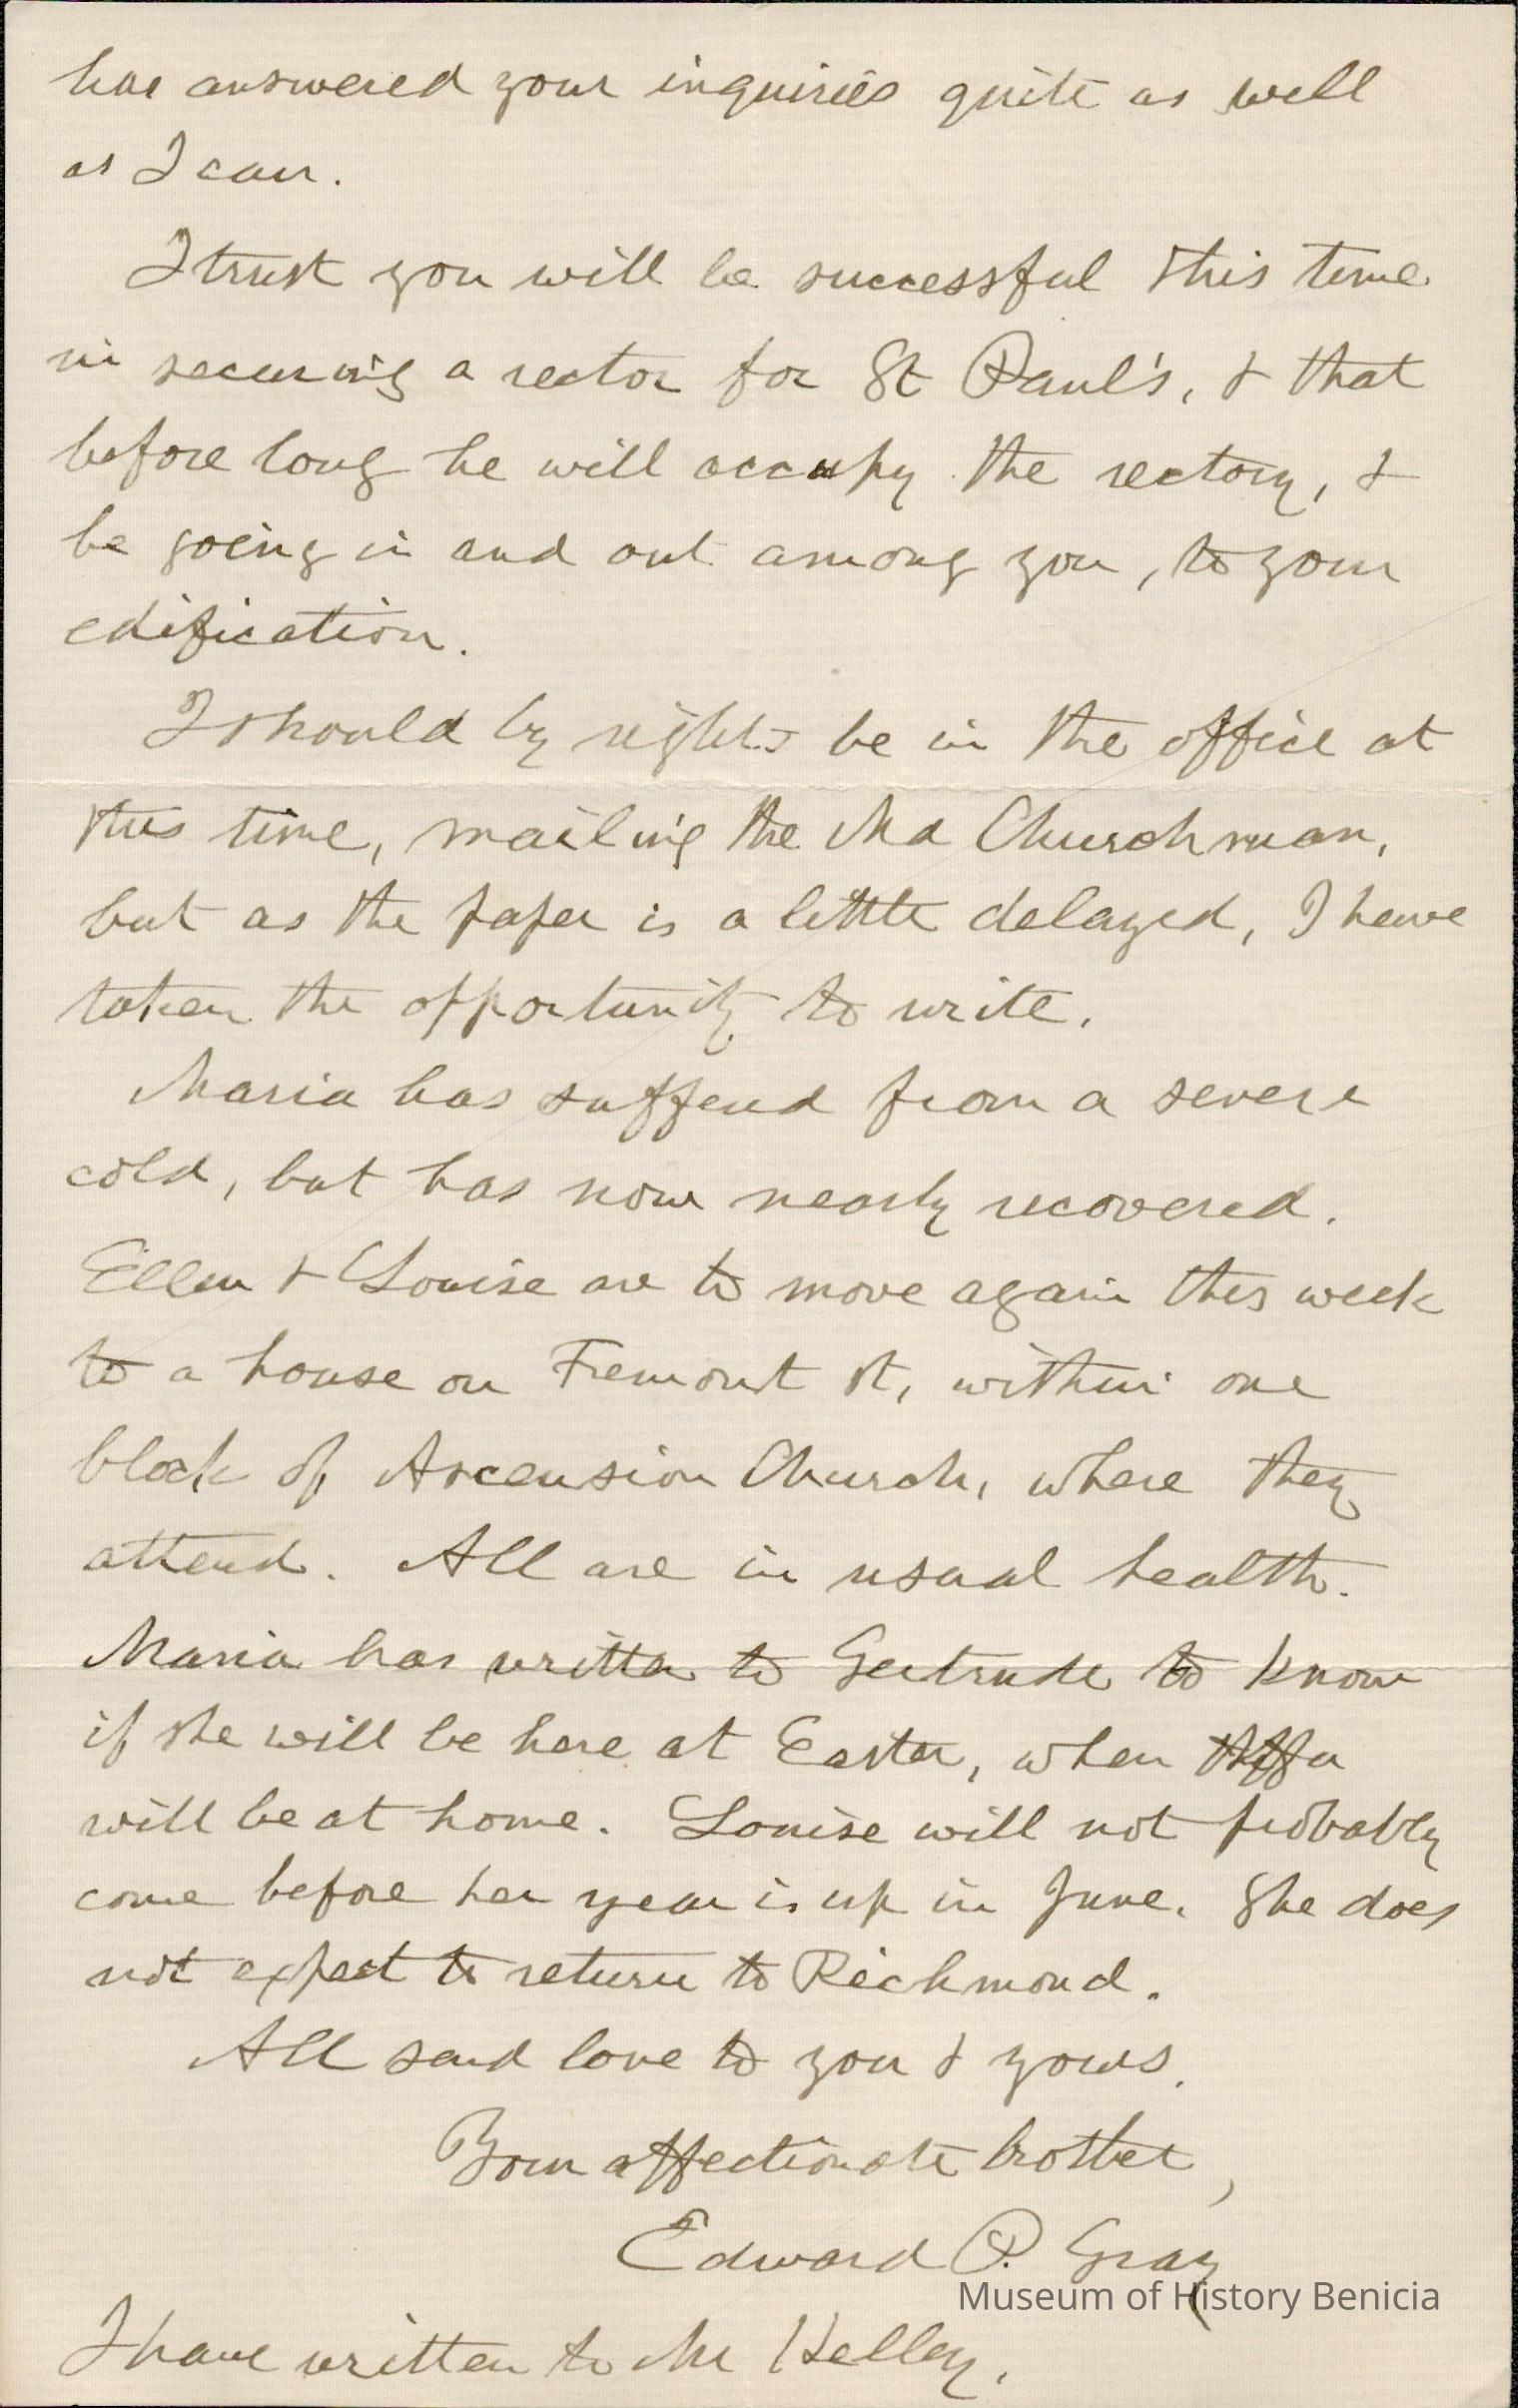 has answered your inquiries quite as well
as I can.
I trust you will be successful this time
in securing a rector for St Paul's, & that
before long he will occupy the rectory, &
be going in and out among you, to your
edification.
I should by rights be in the office at
this time, mailing the Md Churchman,
but as the paper is a little delayed, I have
taken the opportunity to write.
Maria has suffered from a severe
cold, but has now nearly recovered.
Ellen & Louise are to move again this week
to a house on Fremont St, within one
block of Ascension Church, where they
attend. All are in usual health.
Maria has written to Gertrude to know
if she will be here at Easter, when
will be at home. Louise will not probably
come before her year is up in June. She does
not expect to return to Richmond.
All send love to you & yours.
Your affectionate brother,
Edward P. Gray
Museum of History Benicia
I have written to Mr Kelley.